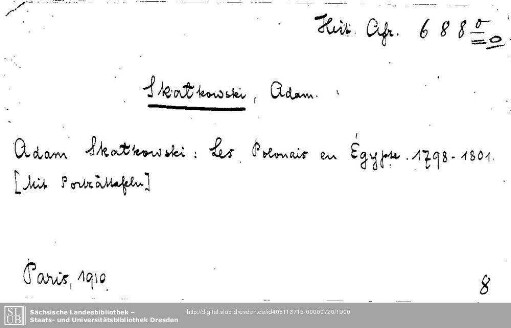 Hist. Afr. 688 o
Skatkowski, Adam.
Adam Skatkowski: Les Polonais en Égypte. 1798-1801.
[Mit Porträttafeln]
Paris, 1910
8
SLUB
Sächsische Landesbibliothek –
Staats- und Universitätsbibliothek Dresden